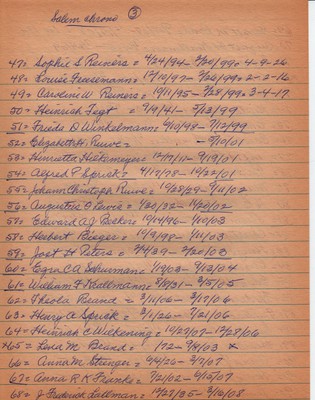 Salem chrono ③
47= Sophie L Reiners = 4/24/94 - 8/20/99 = 4-9-26
48= Louise Fruesemann = 12/10/97 - 2/26/99 = 2-2-16
49= Caroline W Reiners = 10/11/95 - 7/28/99 = 3-4-17
50= Heinrich Tegt = 9/9/41 - 5/23/99
51= Frieda D Winkelmann = 9/10/98 - 7/12/99
52= Elizabeth H. Ruwe = - 5/9/01
53= Henrietta Hakemeyer = 12/17/11 - 9/19/01
54= Alfred P Spruck = 4/12/78 - 1/22/01
55= Johann Christoph Ruwe = 10/28/29 - 4/11/02
56= Augustus F Ruwe = 1/21/32 - 10/20/02
57= Edward A J Beckers = 10/14/96 - 1/10/03
58= Herbert Bieger = 10/9/98 - 1/11/03
59= Jost H Peters = 2/4/39 - 2/20/03
60= Egra C A Schuermann = 1/10/03 - 9/12/04
61= William F Kollmann = 8/8/31 - 3/5/05
62= Theola Brand = 3/11/06 - 3/17/06
63= Henry A. Spruck = 3/1/26 - 7/21/06
64= Heinrich C Wiekening = 10/27/07 - 12/28/06
*65= Lena M. Brand = /72 - 9/4/03 *
66= Anna M Strenger = 4/4/26 - 3/7/07
67= Anna R K Franke = 7/21/02 - 6/15/07
68= J Frederick Dallman = 4/27/35 - 9/16/08